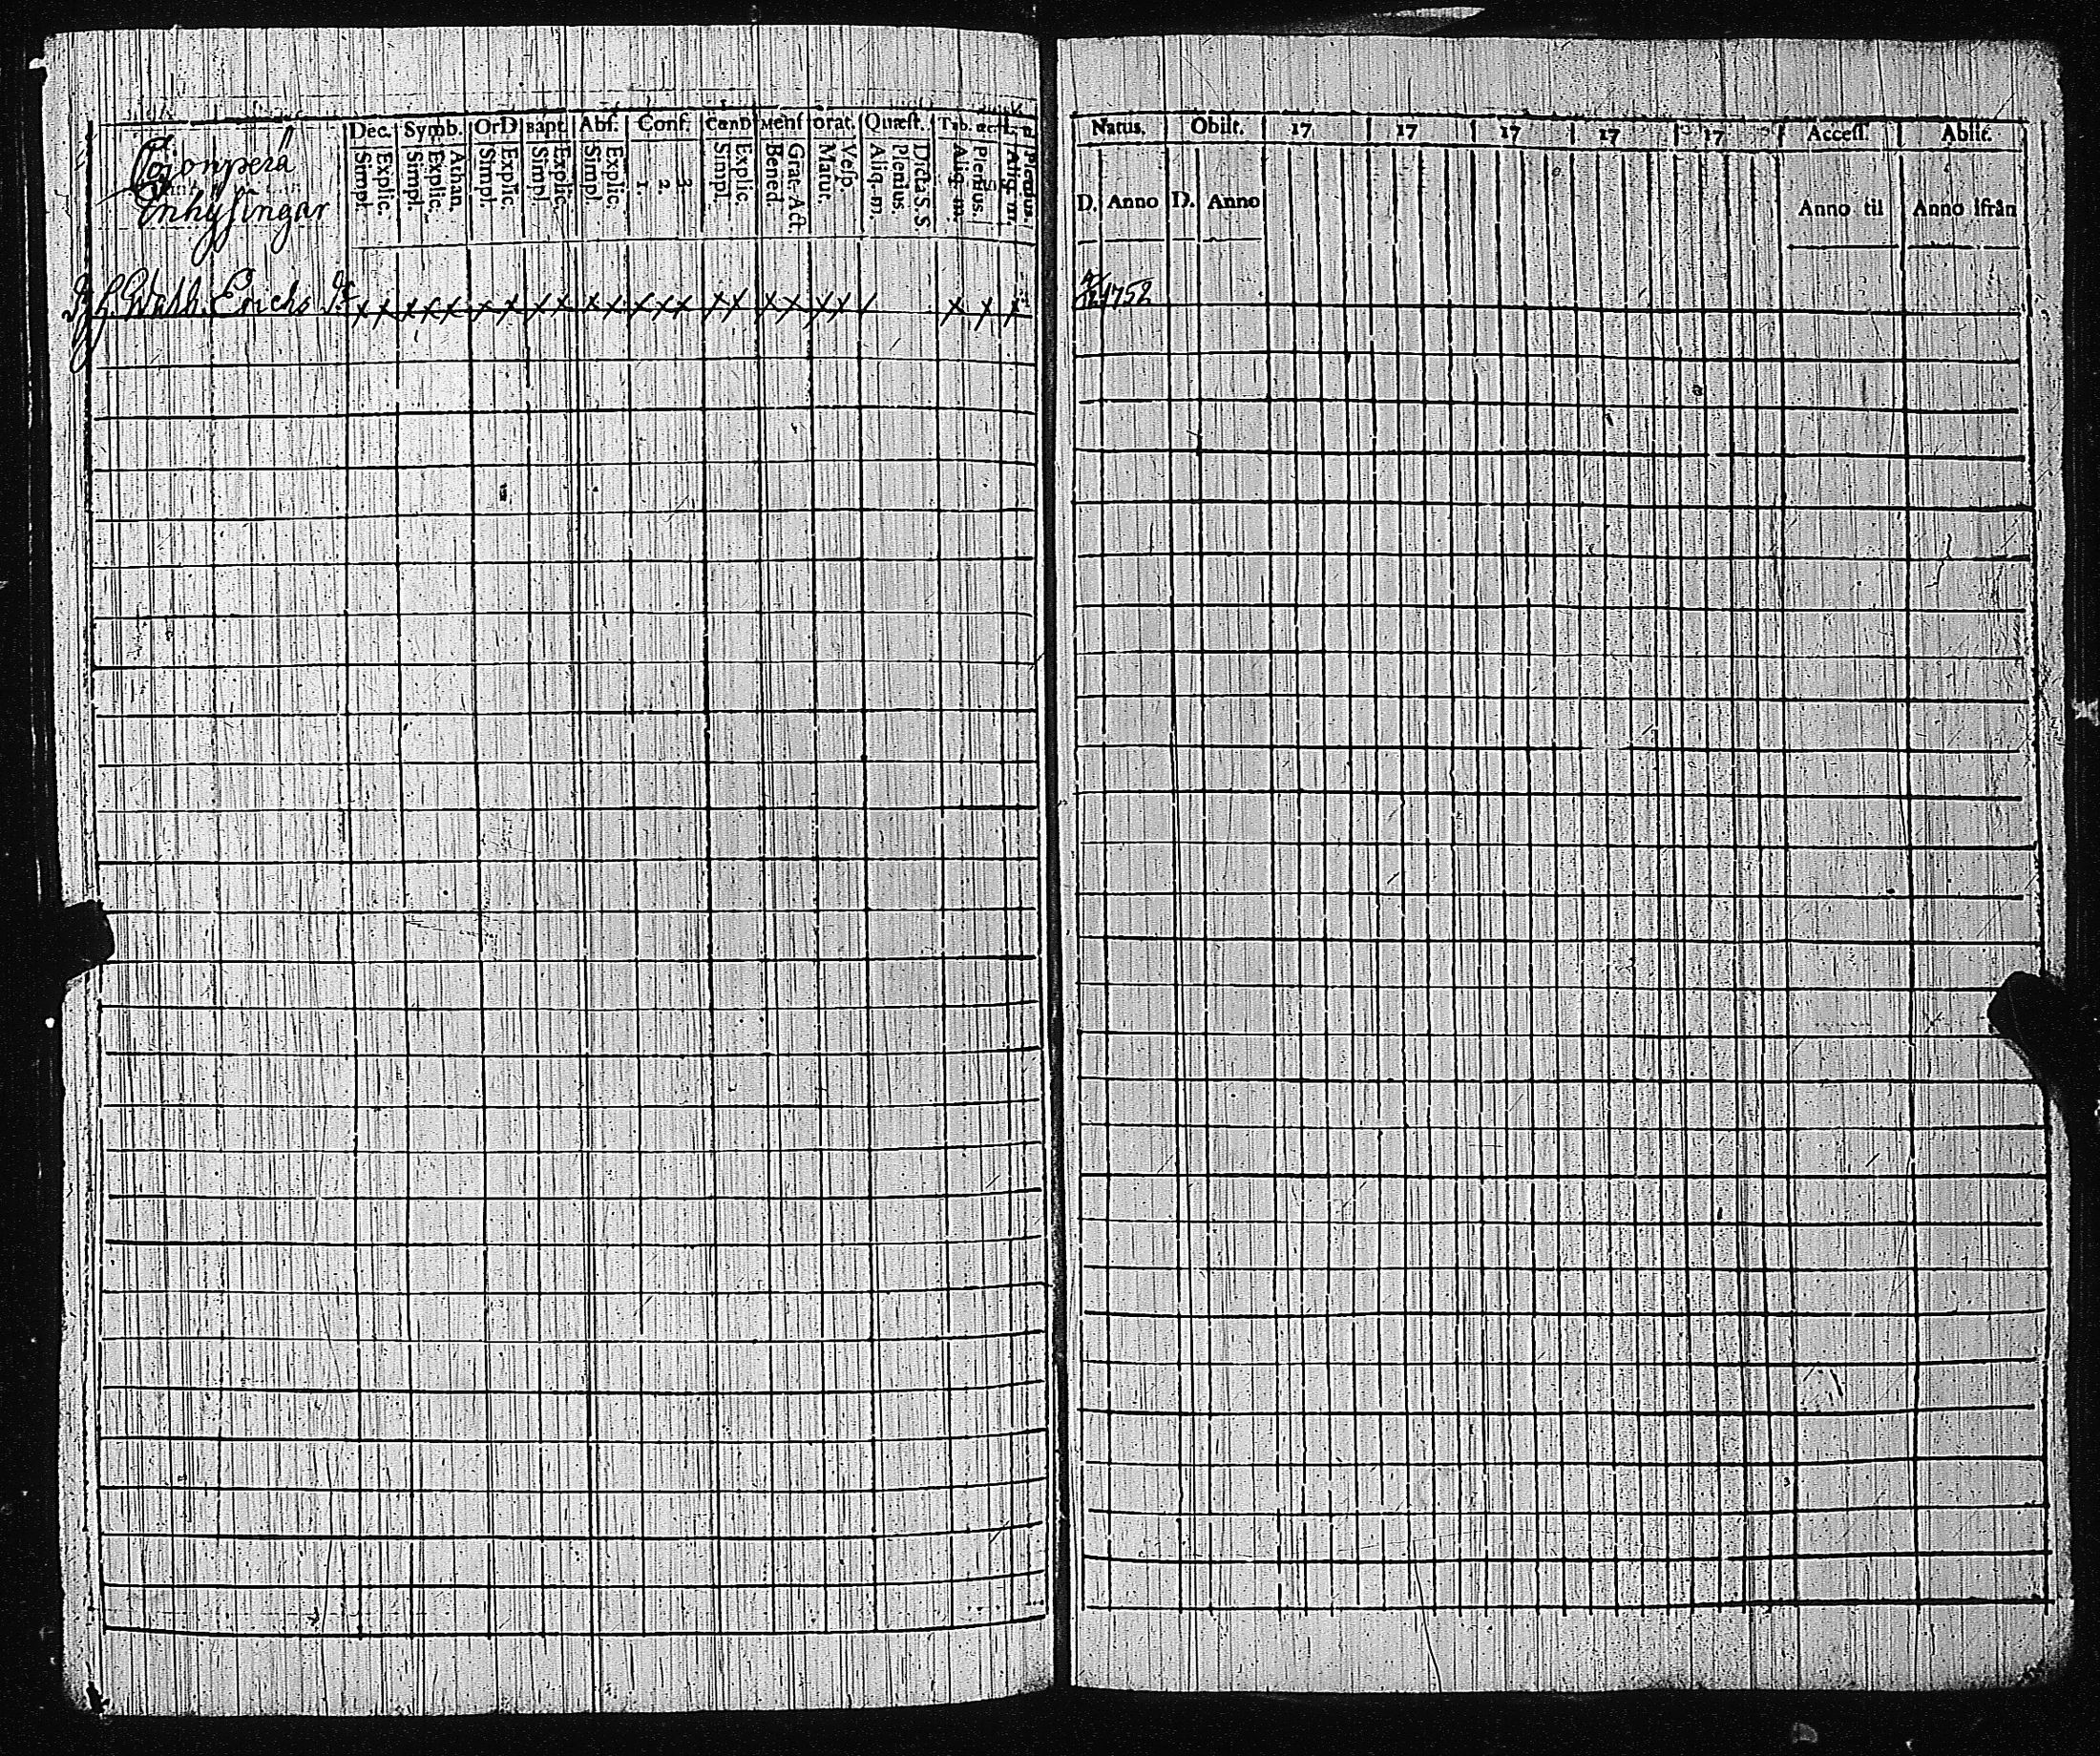 Dec. Symb. OrD Bapt Abs. Conf. CœnD Mens orat. Quæst. Tab. œc
Simpl. Explic. Simpl. Explic. Athan. Simpl. Explic. Simpl Explic. Simpl. Explic. 1. 2. 3 Simpl. Explic. Bened. Grat-Act. Matur. Vesp. Aliq. m. Plenius. Dicta S.S. Aliq. m. Plenius. Aliq. m. Plenius.
Enhysingar
Erichs
Natus. Obiit. 17 17 17 17 17 Access. Abiit.
D. Anno D. Anno Anno til Anno ifrån
1752